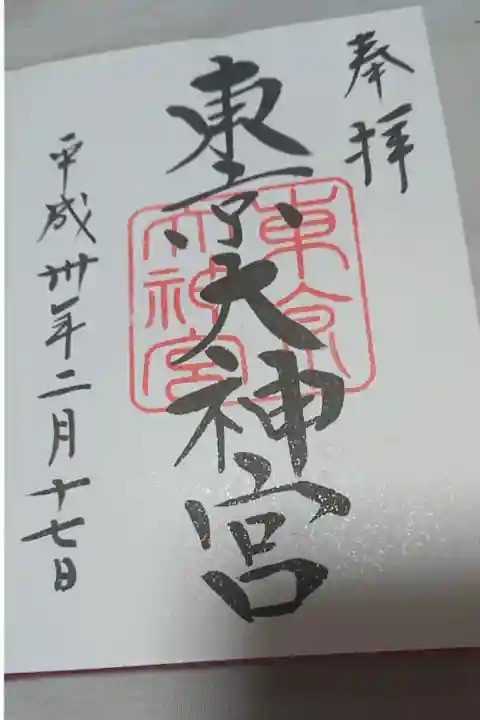 奉拝
東京大神宮
東京
大神宮
平成卅年二月十七日